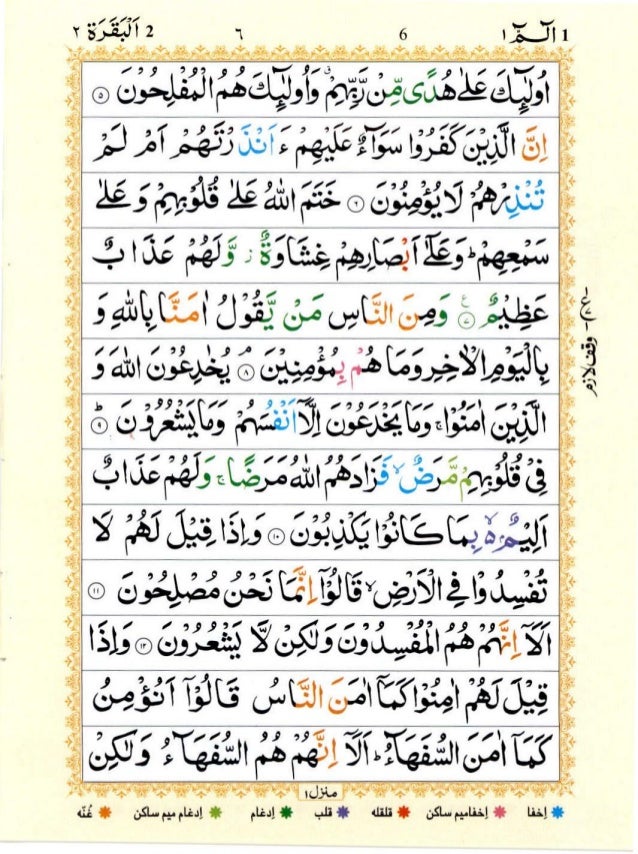 2 اَلْبَقَرَة ٢ ٦ 6 الٓمّٓ ١ 1
اُولٰٓئِكَ عَلٰى هُدًى مِّنْ رَّبِّهِمْ ۙ وَاُولٰٓئِكَ هُمُ الْمُفْلِحُوْنَ ۝٥
اِنَّ الَّذِيْنَ كَفَرُوْا سَوَآءٌ عَلَيْهِمْ ءَاَنْذَرْتَهُمْ اَمْ لَمْ
تُنْذِرْهُمْ لَا يُؤْمِنُوْنَ ۝٦ خَتَمَ اللّٰهُ عَلٰى قُلُوْبِهِمْ وَعَلٰى
سَمْعِهِمْ ؕ وَعَلٰٓى اَبْصَارِهِمْ غِشَاوَةٌ ز وَّلَهُمْ عَذَابٌ
عَظِيْمٌ ۝٧ ع وَمِنَ النَّاسِ مَنْ يَّقُوْلُ اٰمَنَّا بِاللّٰهِ وَ
بِالْيَوْمِ الْاٰخِرِ وَمَا هُمْ بِمُؤْمِنِيْنَ ۝٨ ۘ يُخٰدِعُوْنَ اللّٰهَ وَ
الَّذِيْنَ اٰمَنُوْا ۚ وَمَا يَخْدَعُوْنَ اِلَّاۤ اَنْفُسَهُمْ وَمَا يَشْعُرُوْنَ ۝٩ ؕ
فِيْ قُلُوْبِهِمْ مَّرَضٌ ۙ فَزَادَهُمُ اللّٰهُ مَرَضًا ۚ وَلَهُمْ عَذَابٌ
اَلِيْمٌۢ ۙ۬ بِمَا كَانُوْا يَكْذِبُوْنَ ۝١٠ وَاِذَا قِيْلَ لَهُمْ لَا
تُفْسِدُوْا فِي الْاَرْضِ ۙ قَالُوْۤا اِنَّمَا نَحْنُ مُصْلِحُوْنَ ۝١١
اَلَاۤ اِنَّهُمْ هُمُ الْمُفْسِدُوْنَ وَلٰكِنْ لَّا يَشْعُرُوْنَ ۝١٢ وَاِذَا
قِيْلَ لَهُمْ اٰمِنُوْا كَمَاۤ اٰمَنَ النَّاسُ قَالُوْۤا اَنُؤْمِنُ
كَمَاۤ اٰمَنَ السُّفَهَآءُ ؕ اَلَاۤ اِنَّهُمْ هُمُ السُّفَهَآءُ وَلٰكِنْ
وقف لازم
منزل١
اِخفا اِخفامیم ساکن قلقله قلب اِدغام اِدغام میم ساکن غُنّه